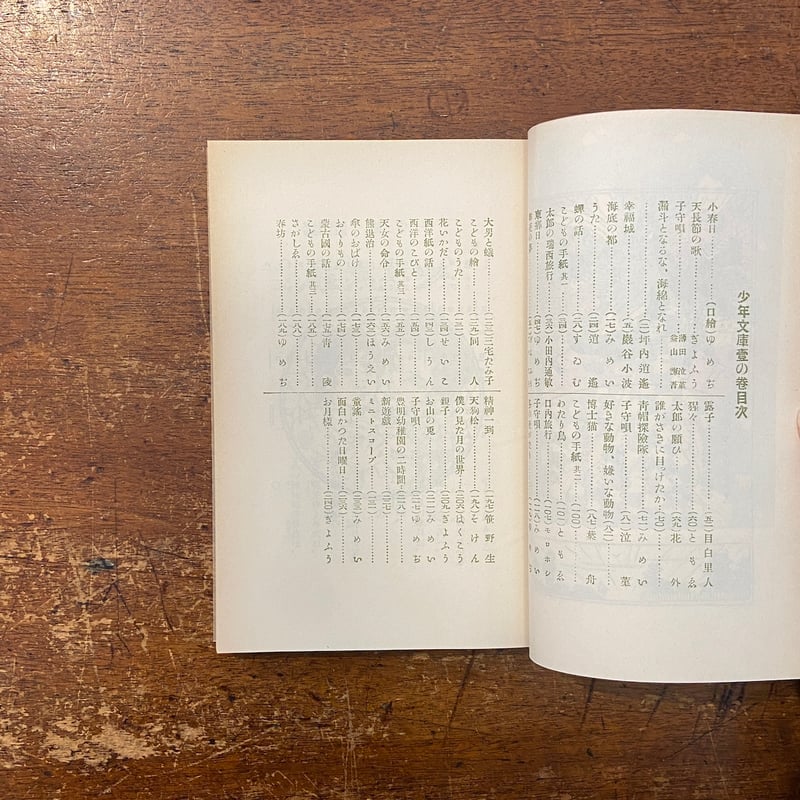 少年文庫壹の卷目次
小春日………(口繪)ゆめぢ
天長節の歌………ぎよふう
子守唄
漏斗となるな、海綿となれ
………(一)坪內逍遙
幸福城………(五)巖谷小波
海底の都………(一七)みめい
うた………(二四)逍遙
蟬の話………(二八)すゐむ
こどもの手紙 其一………(三四)
太郎の瑞西旅行………(三六)小田內通敏
東郷日………(四七)ゆめぢ
露子………(五一)目白里人
猩々………(六〇)ともゑ
太郎の願ひ………(六九)花外
誰がさきに目つけたか……(七〇)
靑帽探險隊………(七一)みめい
子守唄………(八一)泣菫
好きな動物、嫌いな動物(八二)
博士猫………(八七)葵舟
こどもの手紙 其二………(一〇〇)
わたり鳥………(一〇一)ともゑ
口內旅行………(一〇七)モロホシ
子守唄………(一一八)みめい
大男と蟻………(一二三)三宅たみ子
こどもの繪………(一二九)同人
こどものうた………(一三一)
花いかだ………(一三四)せいこ
西洋紙の話………(一四〇)しうん
西洋のこびと………(一五一)
こどもの手紙 其三………(一五四)
天女の命令………(一五五)みめい
熊退治………(一六一)ほうえい
傘のおばけ………(一七一)
おくりもの………(一七四)
蒙古國の話………(一七五)靑陵
こどもの手紙 其三………(一八五)
さがしゑ………(一八八)
春坊………(一八九)ゆめぢ
精神一到………(一九七)笹野生
天狗松………(一九八)そけん
僕の見た月の世界………(二〇六)はくこう
親子………(二〇九)ぎよふう
お山の兎………(二一一)みめい
子守唄………(二一七)ゆめぢ
豊明幼稚園の二時間………(二一八)
新遊戯………(二二七)
ミニトスコープ………(二三一)
童謠………(二三三)みめい
面白かつた日曜日………(二三六)
お月樣………(二四〇)ぎよふう